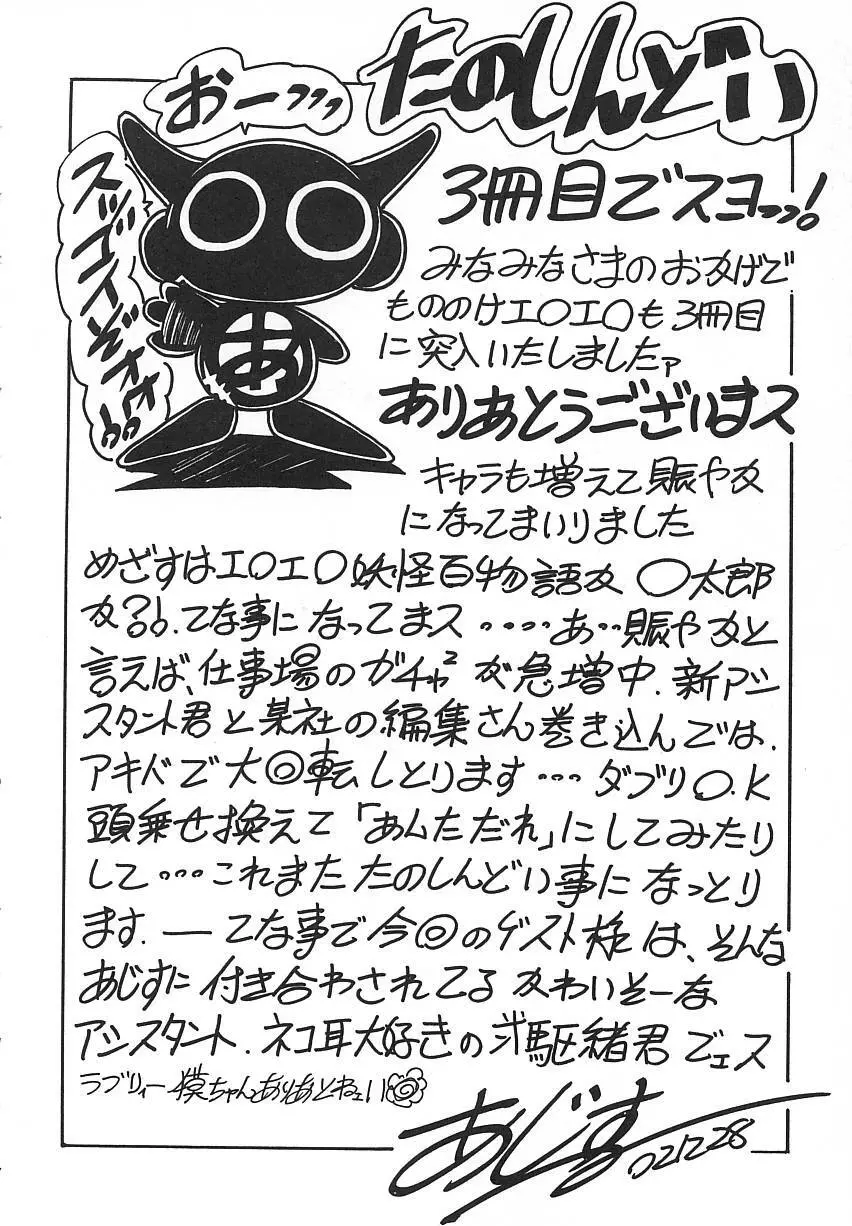 たのしんどい
おーっっっ
スッゲイぞォォ!!
3冊目でスヨっっ!
みなみなさまのおかげで
もののけエ〇エ〇も3冊目
に突入いたしましたァ
ありあとうございまス
キャラも増えて賑やか
になってまいりました
めざすはエ〇エ〇妖怪百物語か 〇太郎
か?!. てな事になってまス・・・・あ・・賑やかと
言えば、仕事場のガチャ²が急増中. 新アシ
スタント君と某社の編集さん巻き込んでは.
アキバで大◎転しとります・・・ダブりO.K
頭乗せ換えて「あんただれ」にしてみたり
して・・・これまたたのしんどい事になっとり
ます. ― てな事で今◎のゲスト様は、そんな
あじすに付き合わされてる かわいそーな
アシスタント. ネコ耳大好きの 駆緒君でェス
ラブリィー 漠ちゃんありあとねェい
あじす 02.12.28
あ